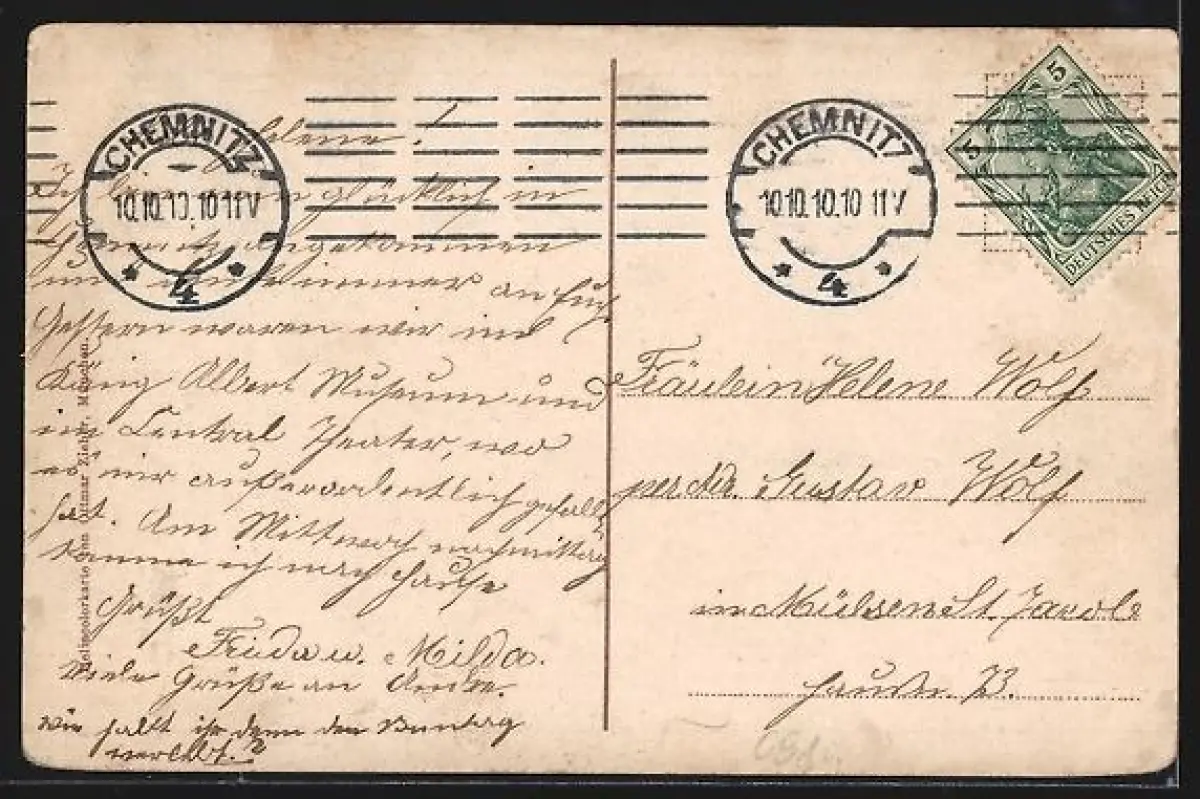 CHEMNITZ
10.10.10.10 11 V
* 4 *
CHEMNITZ
10.10.10.10 11 V
* 4 *
5 5
DEUTSCHES REICH
Helene!
Ich bin glücklich in
Chemnitz angekommen
und
Gestern waren wir im
König Albert Museum und
im Central Theater, wo
es mir außerordentlich gefallen
hat. Am Mittwoch nachmittag
komme ich nach Hause
Grüßt
Frieda u. Milda.
Viele Grüße an
Wie habt ihr denn den Sonntag
verlebt?
Heliocolorkarte von Ottmar Zieher, München.
Fräulein Helene Wolf
per Adr. Gustav Wolf
in Mülsen St. Jacob
Hausnr. 73.